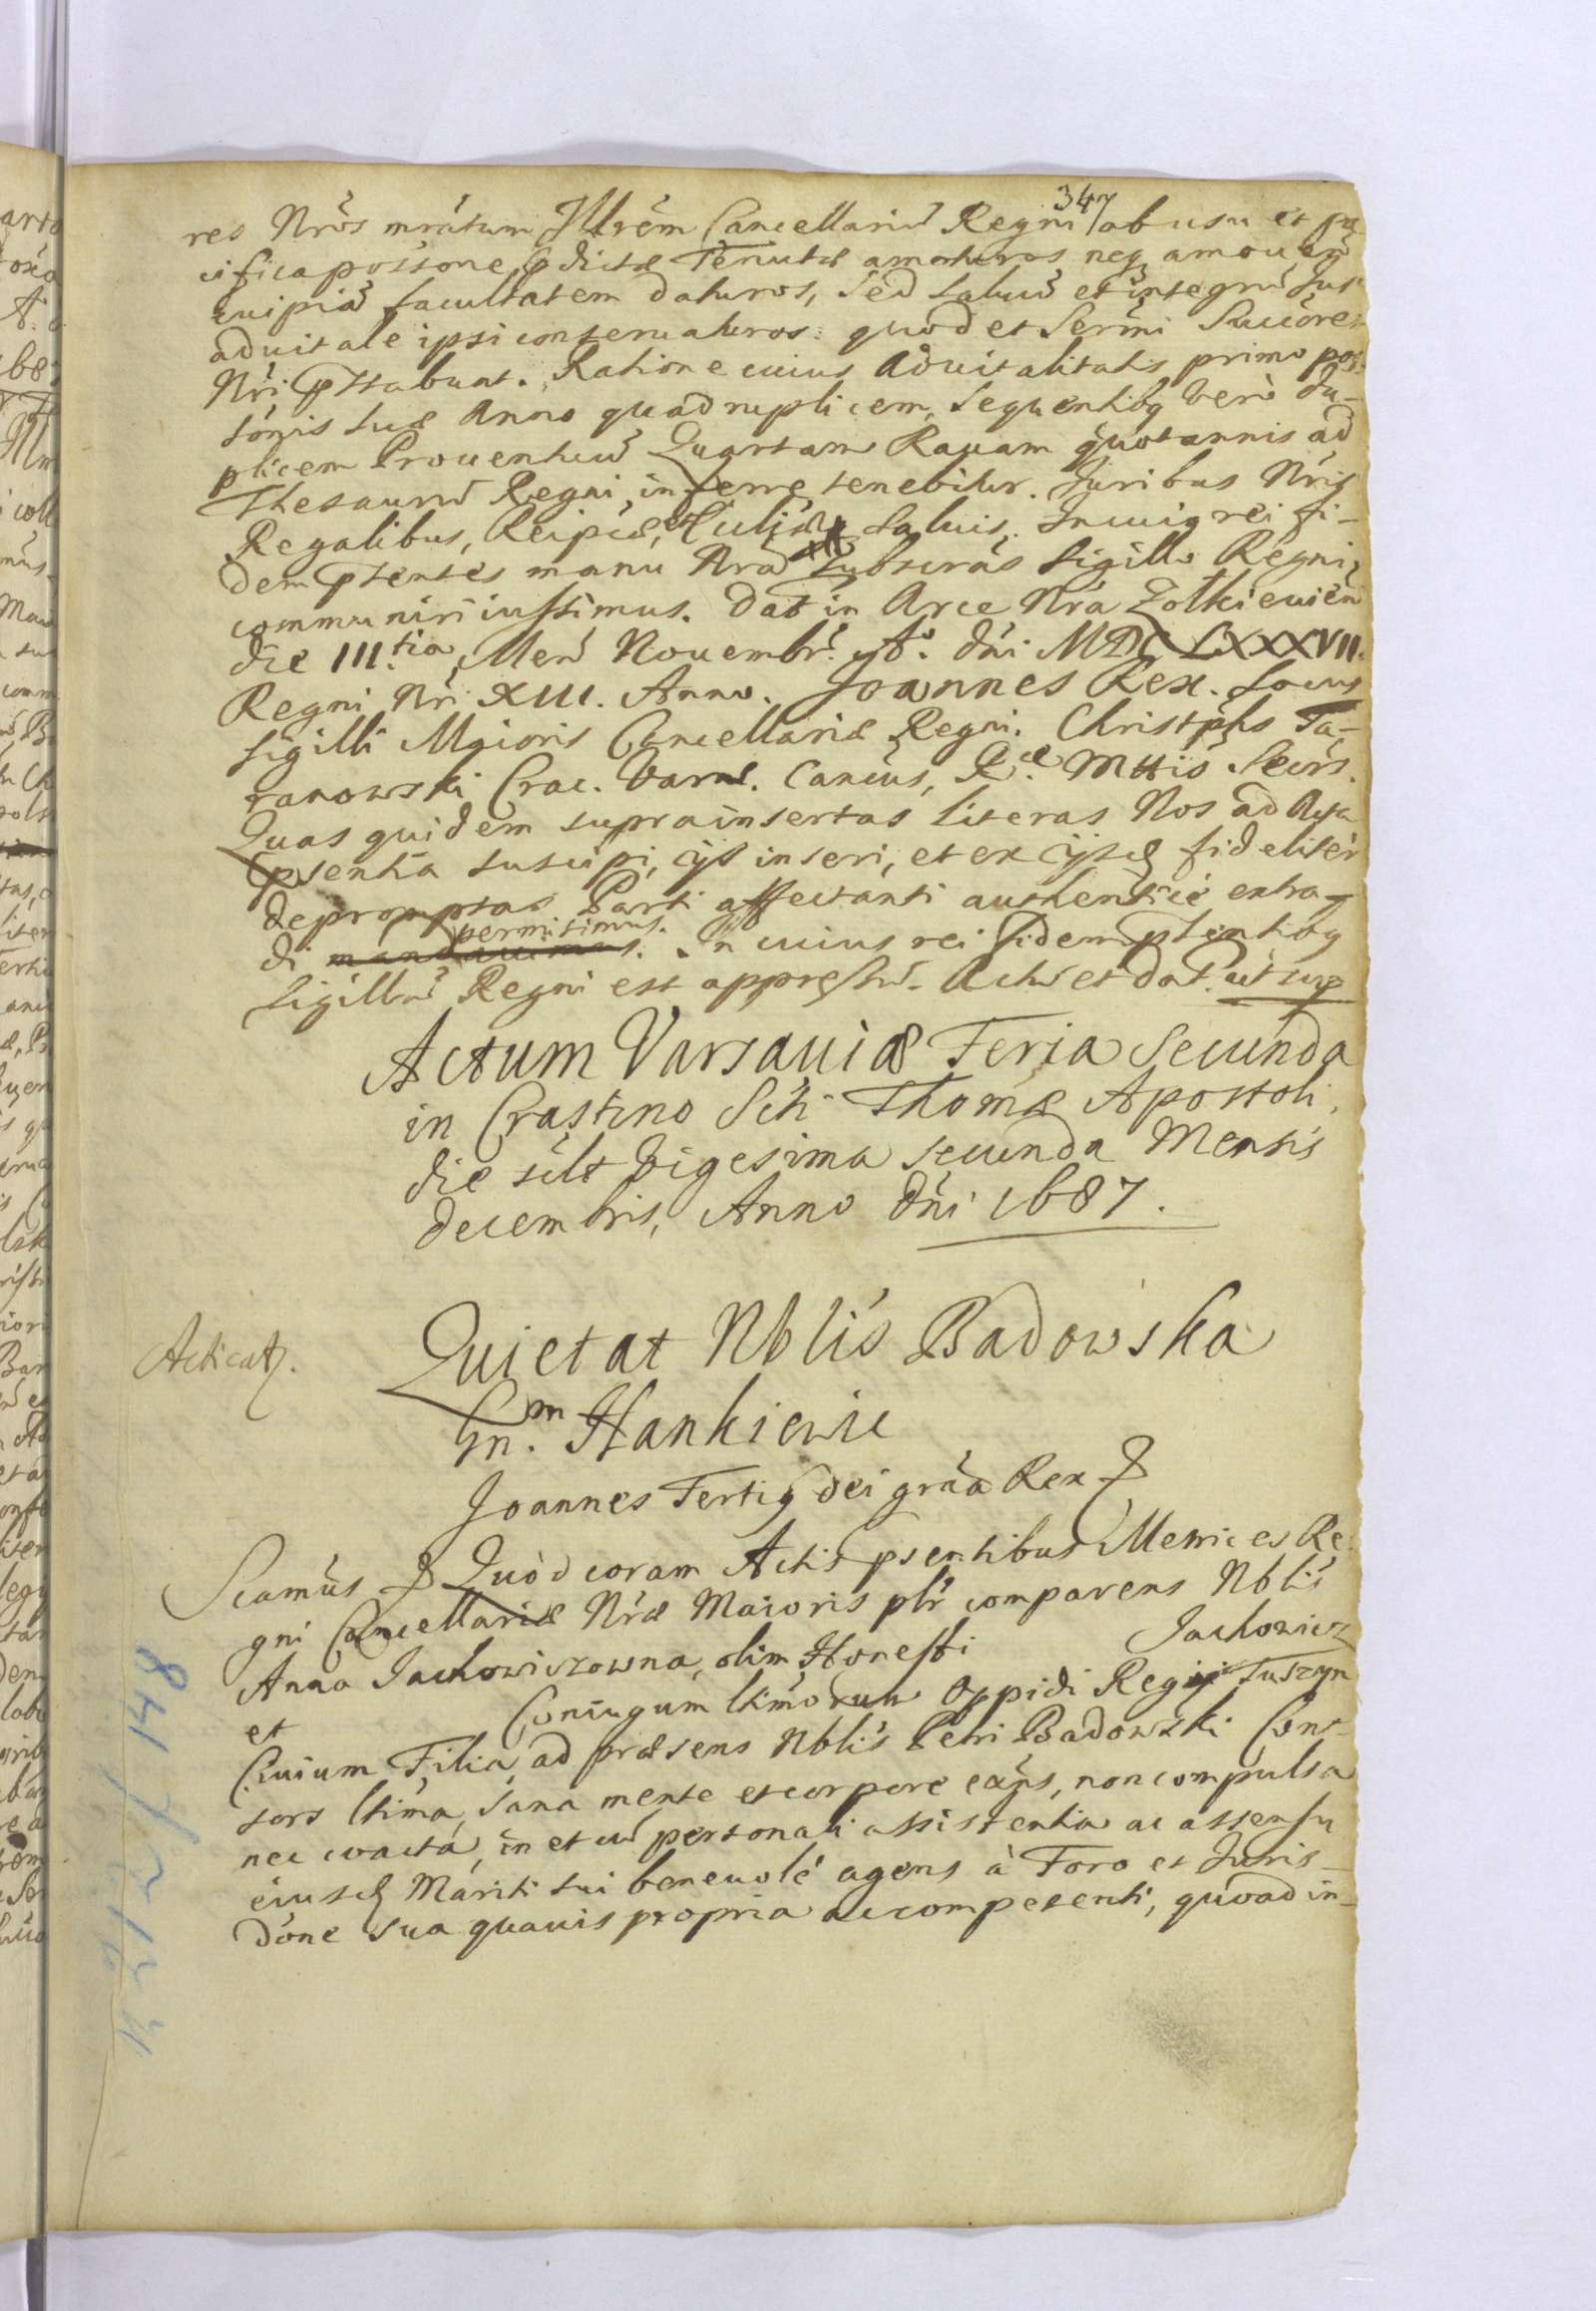 347
res Nros mratum Illrem Cancellariũ Regni ab usu et pa
cifica possone pdictæ Tenutæ amoturos neq amouen
cuipiã facultatem daturos, Sed saluũ et integrũ Jus
aduitale ipsi conseruaturos: quod et Sermi Succores
Nri pstabunt. Ratione cuius Aduitalitatis primo pos-
sonis suæ Anno quadruplicem, sequentibq vero du-
plicem Prouentuũ Quartam Rauam quotannis ad
Thesaurũ Regni inferre tenebitur. Juribus Nris
Regalibus, Reipcæ, et saluis. In cuiq rei fi-
dem pntes manu Nra subscras sigillo Regni
communiri iussimus. Dat in Arce Nra Zolkieuien
die III.tia Men Nouembr. Ao. dni MDCLXXXVII.
Regni Nri XIII. Anno. Joannes Rex. Locus
sigilli Maioris Cancellariæ Regni. Christphs Ta-
ranowski Crac. Varm. Cancus, Ræ Mttis Secrs.
Quas quidem suprainsertas literas Nos ad Acta
psentia suscipi, ijs inseri, et ex ijsd fideliter
depromptas Parti affectanti authentice extra-
di mandauimus. permisimus. In cuius rei fidem pntibq
sigillũ Regni est appressũ. Actũ et Dat. ut sup
Actum Varsauiæ Feria Secunda
in Crastino Scti Thomæ Apostoli,
die silt Vigesima secunda Mensis
Decembris, Anno dni 1687.
Acticat.
Quietat Nblis Badowska
Gn.m Hankiewic
Joannes Tertiq Dei gra Rex
Scamus Quod coram Actis psentibus Metrices Re-
gni Cancellariæ Nræ Maioris plr comparens Nblis
Anna Jachowiczowna, olim Honesti Jachowicz
et Coniugum ltimorum Oppidi Regij Tuszyn
Ciuium Filia, ad præsens Nblis Petri Badowski Cons-
sors ltima, sana mente et corpore exns, non compulsa
nec coacta, in et cũ personali assistentia ac assensu
eiusd Mariti sui beneuole agens à Foro et Juris-
done sua quauis propria ac competenti, quoad in-